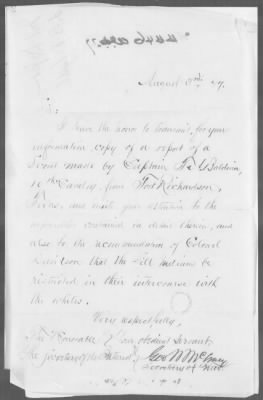 August 3rd 77.
Sir:
I have the honor to transmit, for your
information copy of a report of a
Scout made by Captain T. A. Baldwin,
10th Cavalry, from Fort Richardson,
Texas, and invite your attention to the
contained in detail therein, and
also to the recommendation of Colonel
Davidson that the Sill Indians be
restricted in their intercourse with
the whites.
Very respectfully,
Your obedient servant
The Honorable
The Secretary of the Interior
Geo. W. McCrary
Secretary of War